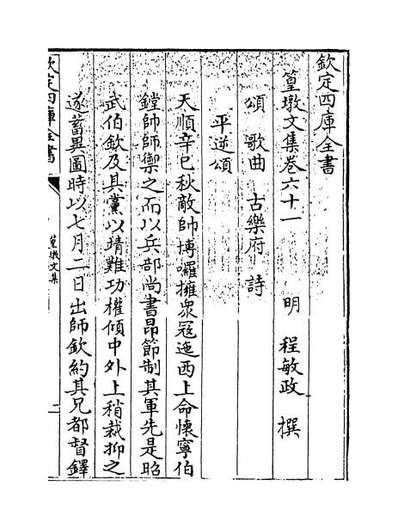 欽定四庫全書
篁墩文集卷六十一 明 程敏政 撰
頌 歌曲 古樂府 詩
平逆頌
天順辛巳秋敵帥博囉擁衆寇迤西上命懷寧伯
鏜帥師禦之而以兵部尚書昂節制其軍先是昭
武伯欽及其黨以靖難功權傾中外上稍裁抑之
遂蓄異圖時以七月二日出師欽約其兄都督鐸
欽定四庫全書
篁墩文集